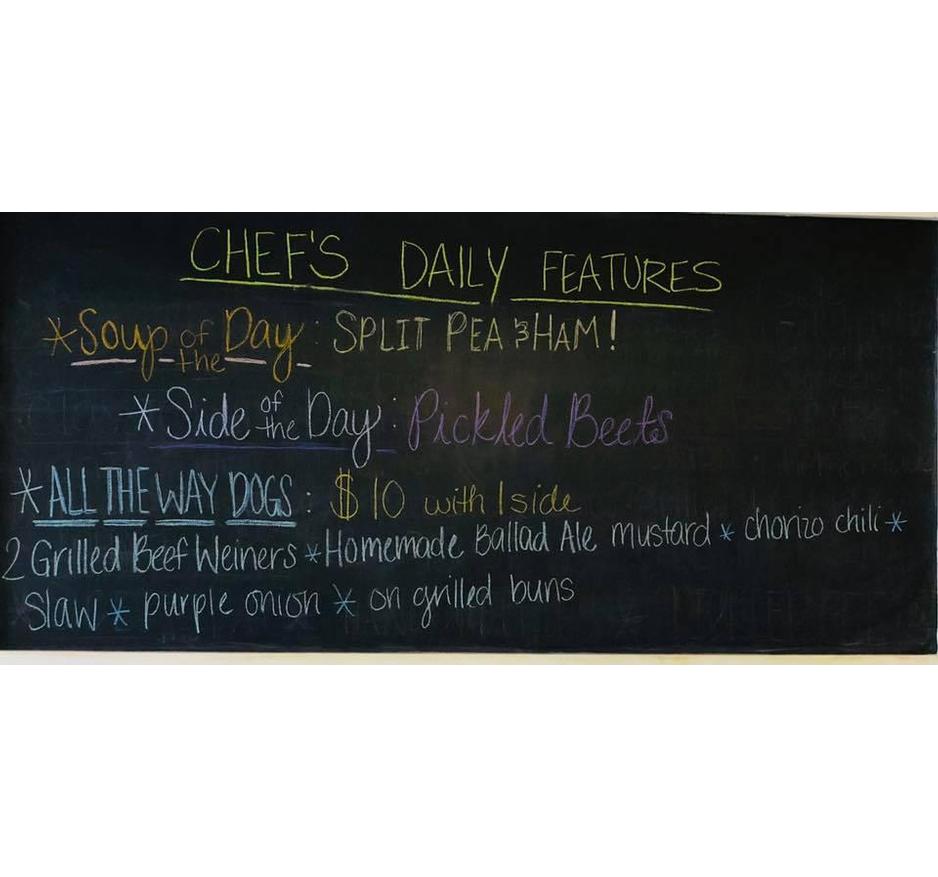 CHEF'S DAILY FEATURES
*Soup of the Day: SPLIT PEA & HAM!
*Side of the Day: Pickled Beets
*ALL THE WAY DOGS: $10 with 1 side
2 Grilled Beef Weiners * Homemade Ballad Ale mustard * chorizo chili *
Slaw * purple onion * on grilled buns